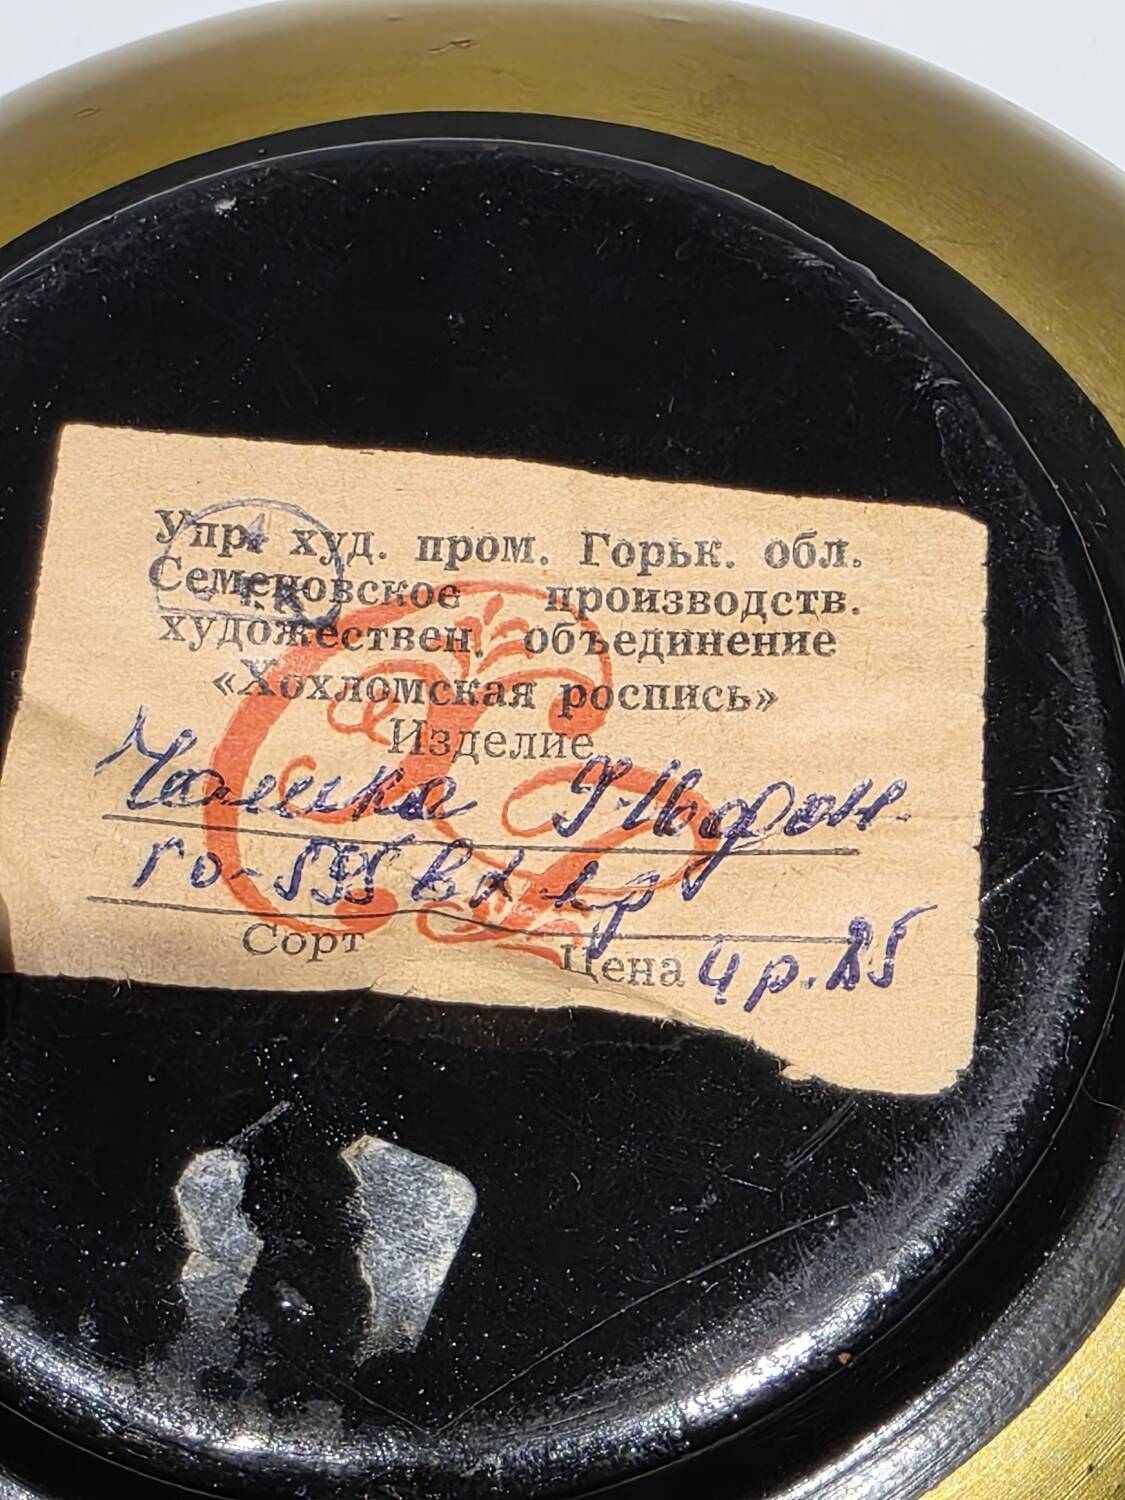 Упр. худ. пром. Горьк. обл.
Семеновское производств.
художествен. объединение
«Хохломская роспись»
Изделие
Чашка
Сорт Цена 4 р. 85